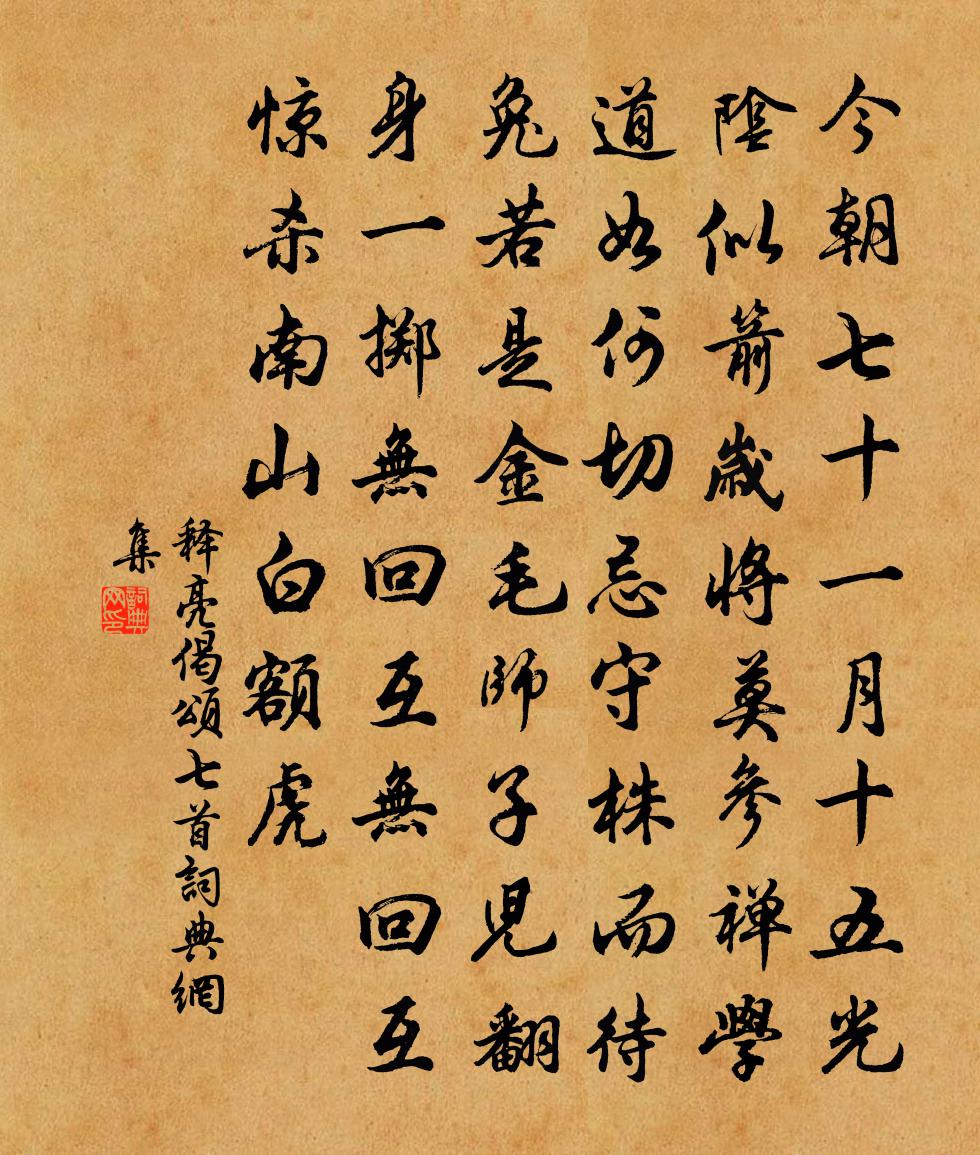 今朝七十一月十五光
陰似箭歲將莫參禅學
道如何切忌守株而待
兔若是金毛師子児翻
身一擲無回互無回互
惊杀南山白额虎
释亮偈頌七首詞典網
集
詞典网印